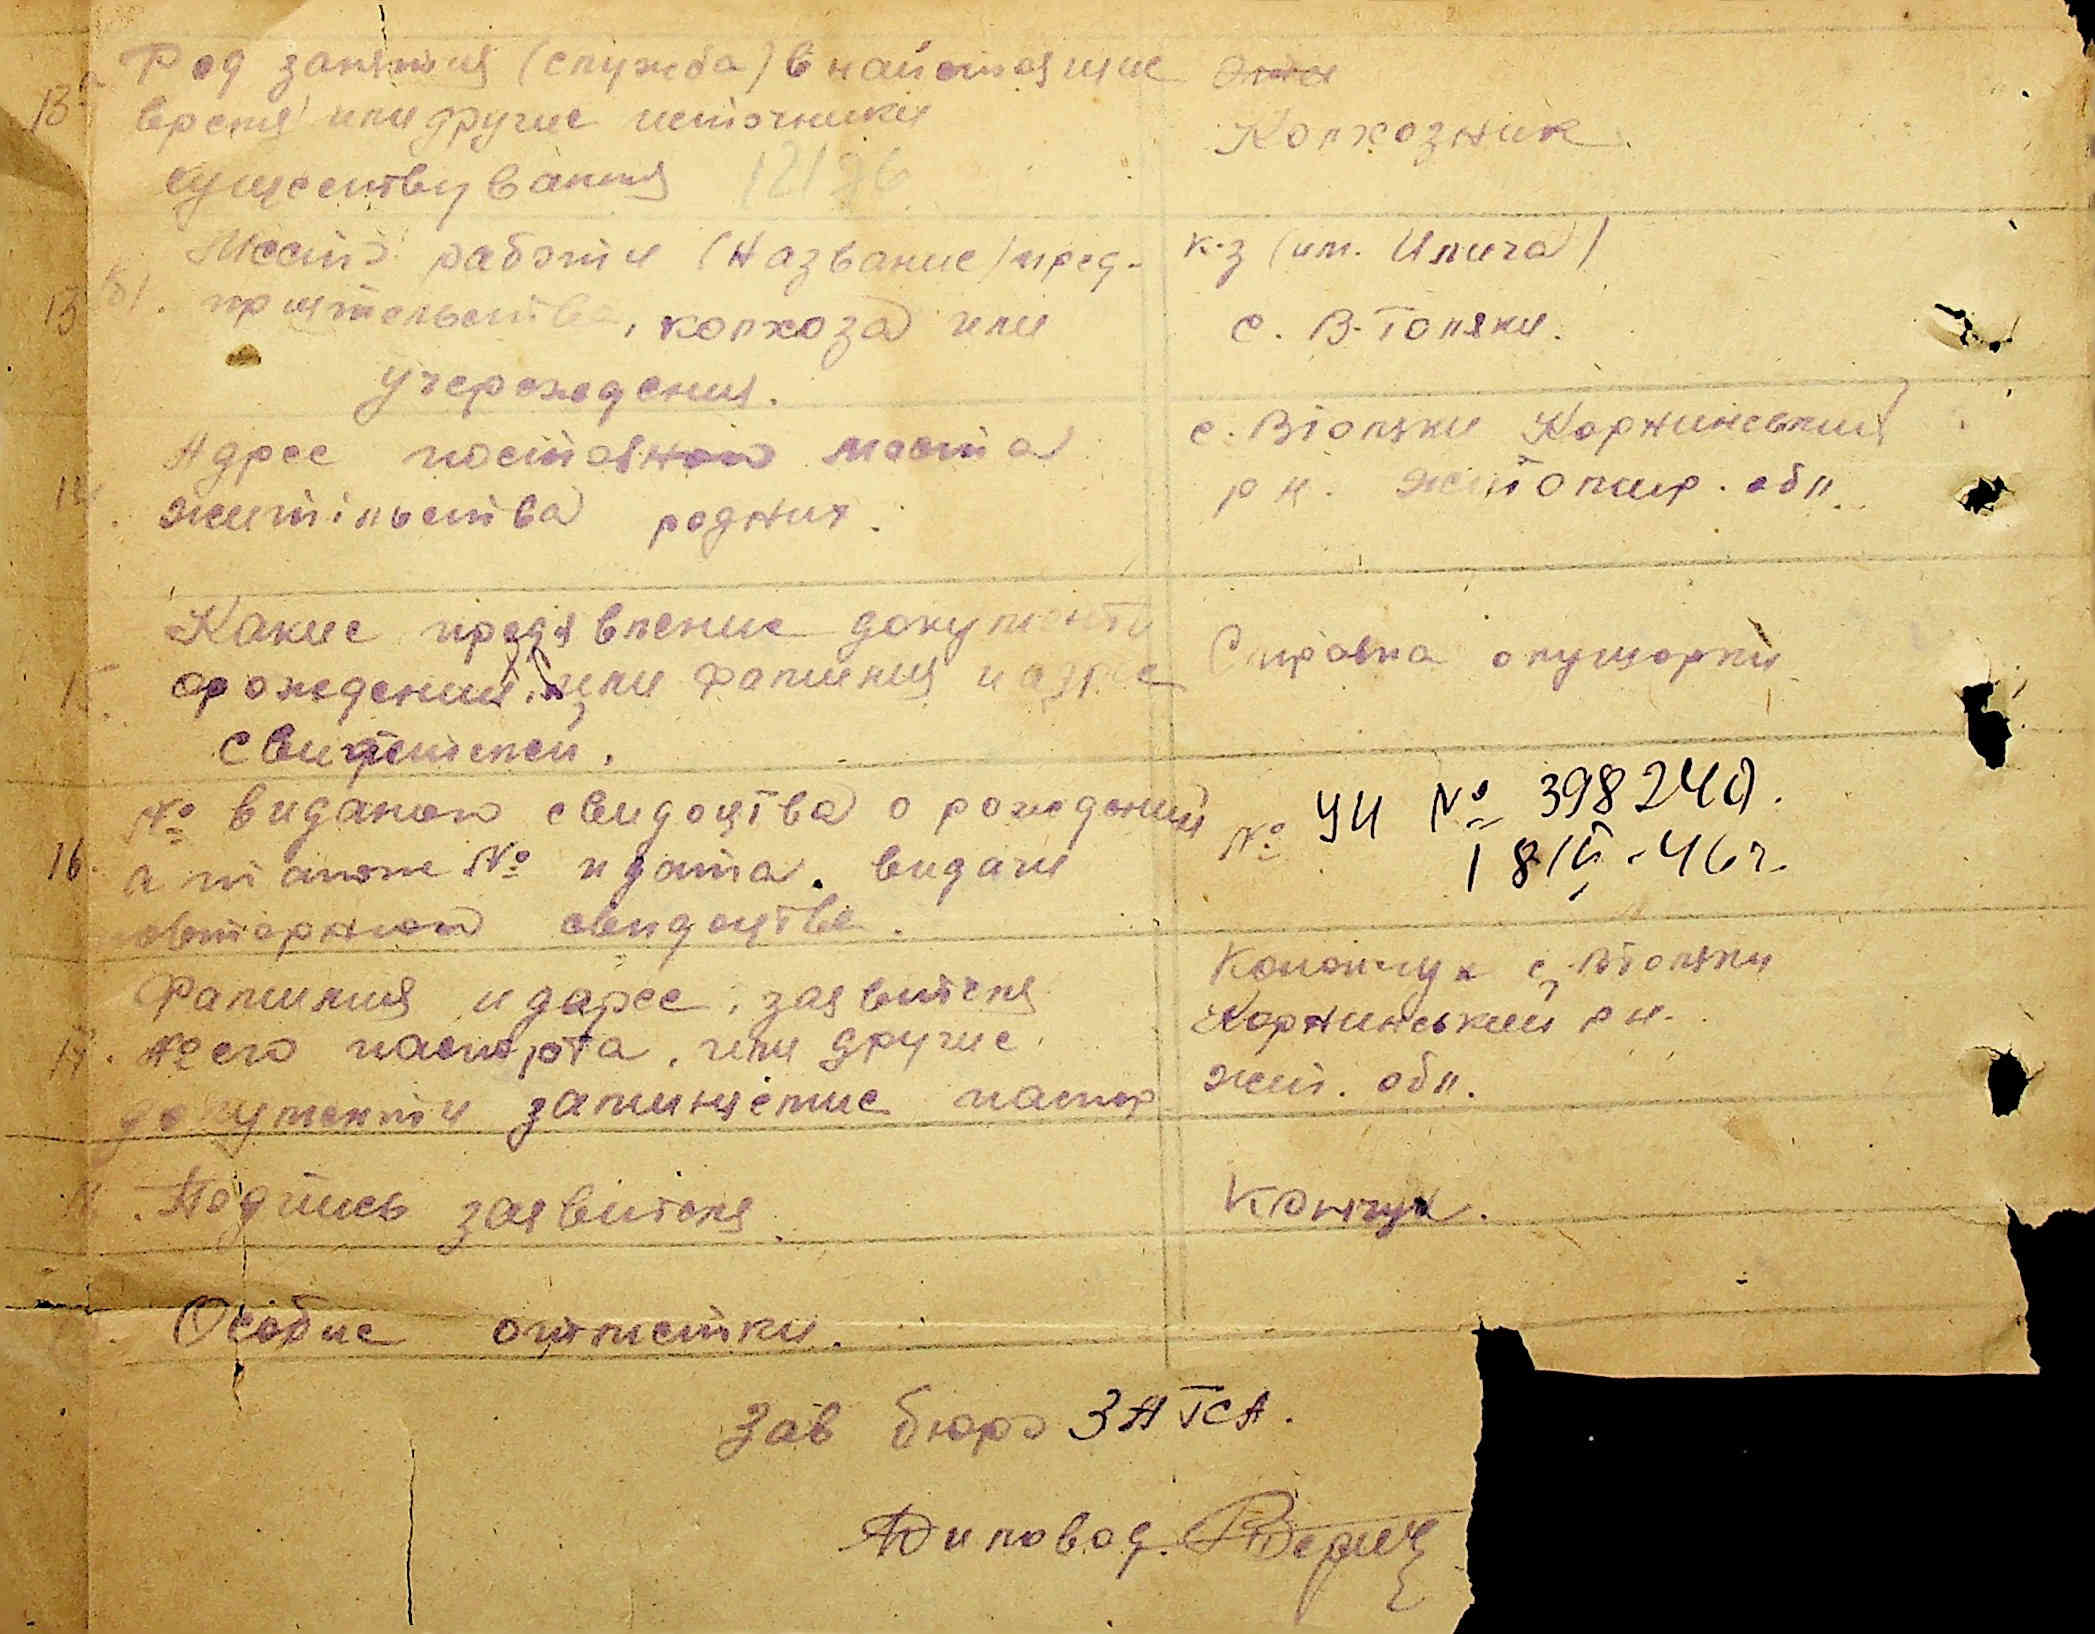 13а Род занятия (служба) в найстоящие
время или другие источники
существування
Колхозник
13 б). Место работи (Название) пред-
приятельства, колхоза или
учереждения.
к-з (им. Илича)
с. В-Голяки.
Адрес постояного места
14. жительства родних.
с. ВГоляки Корнинський
р н. Житомир. обл.
Какие предявление документи
15. орождений, или фамилия и адрес
свидетелей.
Справка акушорки
№ виданого свидоцтва о рождений
16. а также № и дата. видачи
повторного свидоцтва.
№ УИ № 398240.
18/II-46г.
Фамилия и адрес, заявителя
17. № его паспорта, или другие
документи заминяемие паспор
с. ВГоляки
Корнинський р н.
Жит. обл.
Подпись заявителя
Особие отметки.
Зав бюро ЗАГСА.
Диловод.